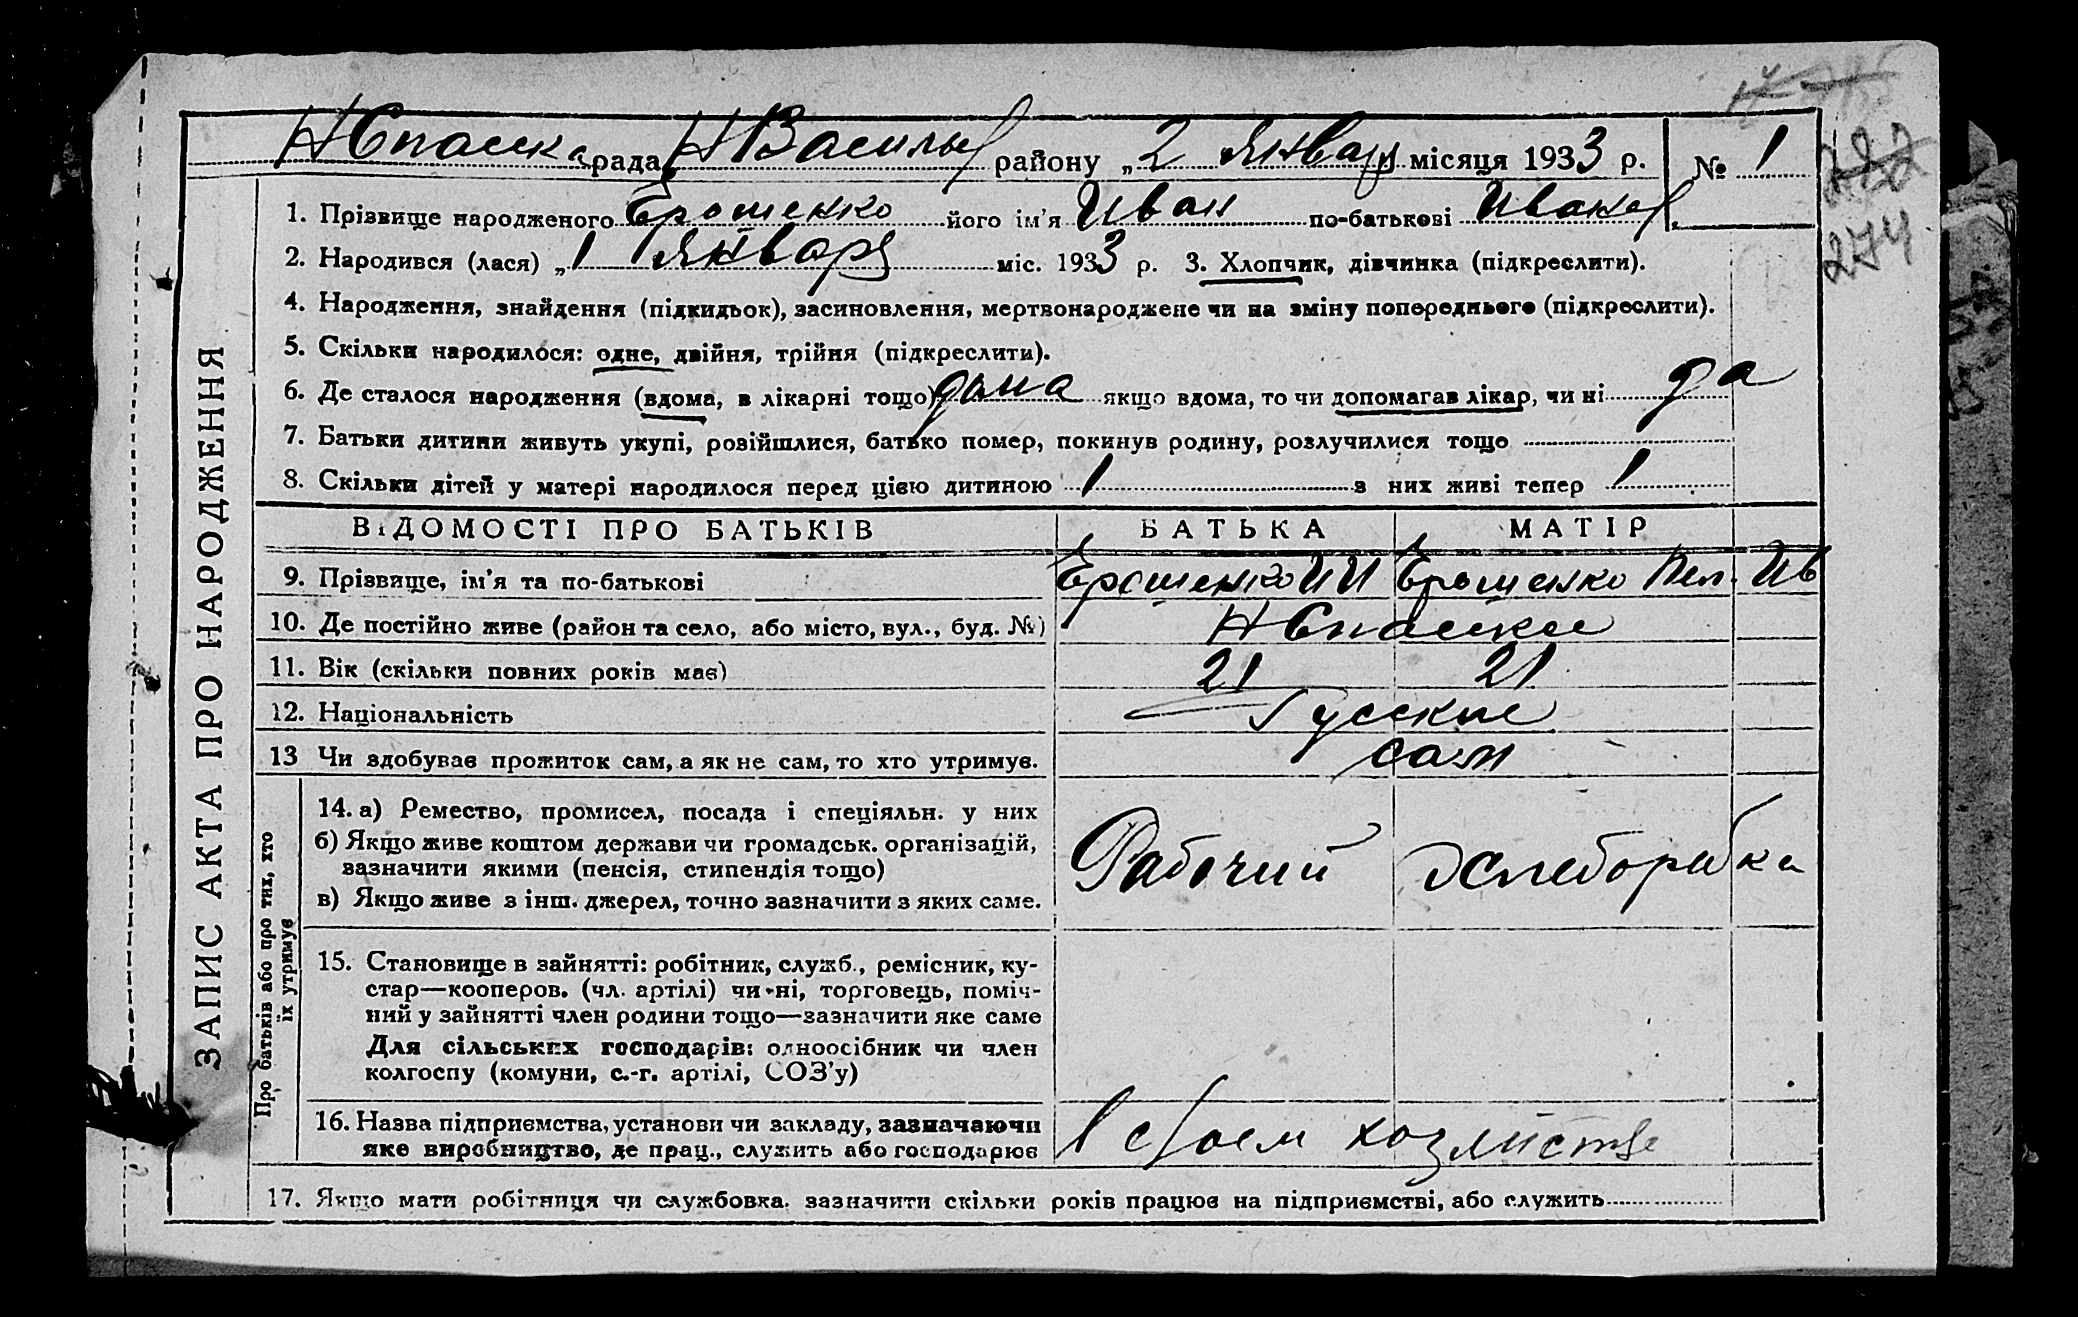 НСпасска рада НВасильев району „2 Января місяця 1933 р. № 1
1. Прізвище народженого Ерошенко його ім'я Иван по-батькові Иванов
274
2. Народився (лася) „1 Января міс. 1933 р. 3. Хлопчик, дівчинка (підкреслити).
4. Народження, знайдення (підкидьок), засиновлення, мертвонароджене чи на зміну попереднього (підкреслити).
5. Скільки народилося: одне, двійня, трійня (підкреслити).
6. Де сталося народження (вдома, в лікарні тощо) дома якщо вдома, то чи допомагав лікар, чи ні да
7. Батьки дитини живуть укупі, розійшлися, батько помер, покинув родину, розлучилися тощо
8. Скільки дітей у матері народилося перед цією дитиною 1 з них живі тепер 1
ВІДОМОСТІ ПРО БАТЬКІВ БАТЬКА МАТІР
9. Прізвище, ім'я та по-батькові Ерошенко И И Ерошенко Пел. Ив
10. Де постійно живе (район та село, або місто, вул., буд. №) НСпасское
11. Вік (скільки повних років має) 21 21
12. Національність Русские
13 Чи здобував прожиток сам, а як не сам, то хто утримує. сам
14. а) Ремество, промисел, посада і спеціяльн. у них
б) Якщо живе коштом держави чи громадськ. організацій,
зазначити якими (пенсія, стипендія тощо)
Рабочий Хлеборобка
в) Якщо живе з інш. джерел, точно зазначити з яких саме.
15. Становище в зайнятті: робітник, служб., ремісник, ку-
стар—кооперов. (чл. артілі) чи ні, торговець, поміч-
ний у зайнятті член родини тощо—зазначити яке саме
Для сільських господарів: одноосібник чи член
колгоспу (комуни, с.-г. артілі, СОЗ'у)
16. Назва підприємства, установи чи закладу, зазначаючи
яке виробництво, де прац., служить або господарює
в своем хозяйстве
17. Якщо мати робітниця чи службовка, зазначити скільки років працює на підприємстві, або служить
ЗАПИС АКТА ПРО НАРОДЖЕННЯ
Про батьків або про тих, хто
їх утримує